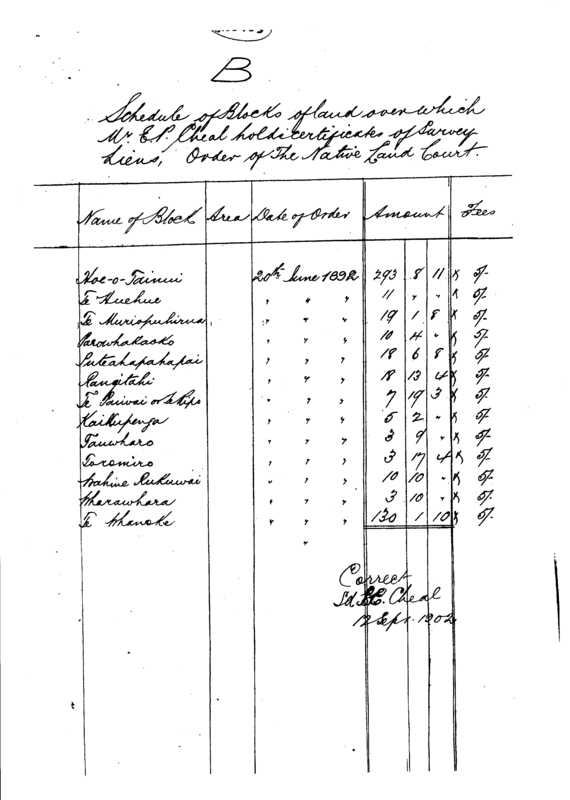 B
Schedule of Blocks of land over which
Mr. E.P. Cheal holds certificates of Survey
Liens, Order of The Native Land Court.
Name of Block Area Date of Order Amount Fees
Hoe-o-Tainui 20th June 1892 293 8 11 x 5/-
Te Huehue " " " 11 " " x 5/-
Te Muriopuhirua " " " 19 1 8 x 5/-
Parawhakaoko " " " 10 4 " x 5/-
Puteahapahapai " " " 18 6 8 x 5/-
Rangitahi " " " 18 13 4 x 5/-
Te Paiwai or Te Kipo " " " 7 19 3 x 5/-
Kaikupenga " " " 5 2 " x 5/-
Tauwharo " " " 3 9 " x 5/-
Toromiro " " " 3 17 4 x 5/-
Wahine Rukuwai " " " 10 10 " x 5/-
Wharawhara " " " 3 10 " x 5/-
Te Whanake " " " 130 1 10 x 5/-
"
Correct
Sd Cheal
12 Sept. 1902